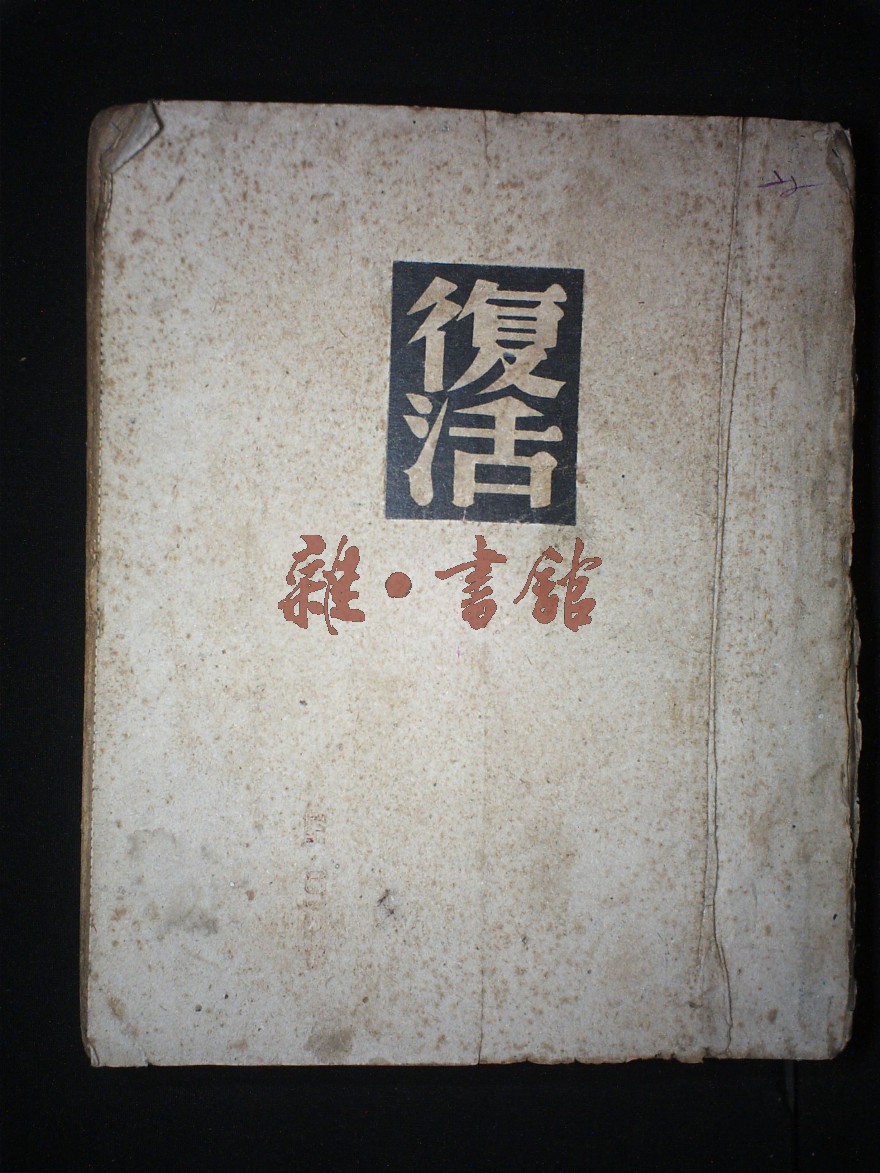 復
活
雜·書館